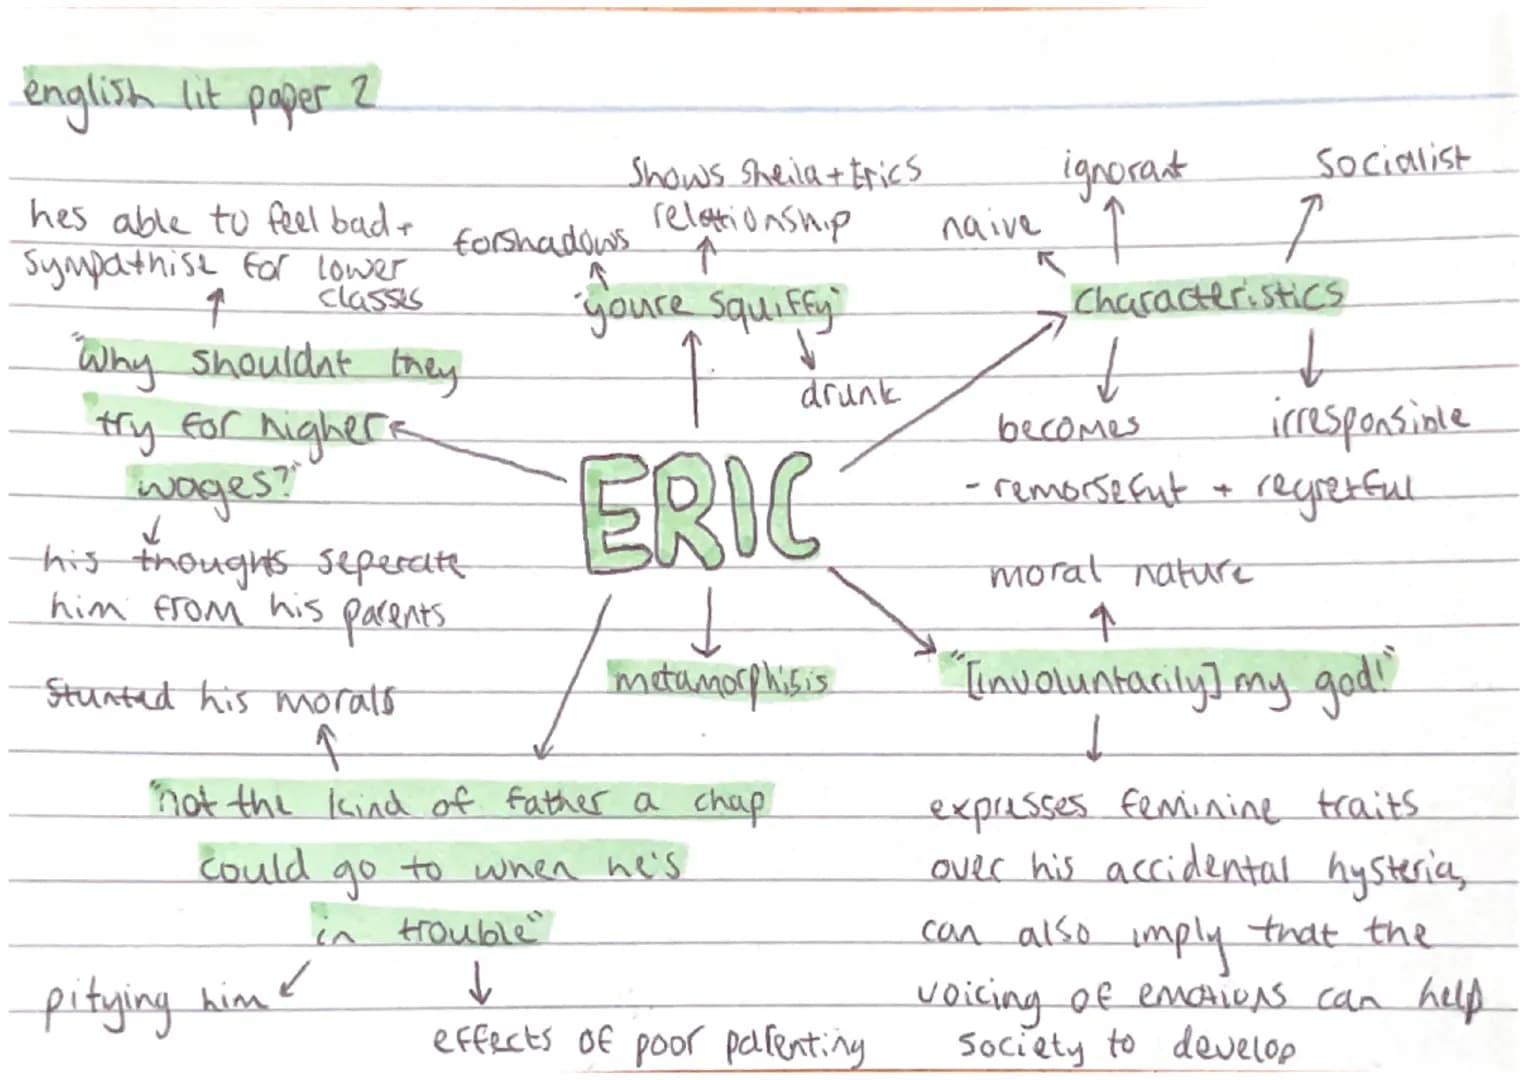 english lit paper 2
shows sheila + Erics
relationship
ignorant
socialist
hes able to feel bad +
sympathise for lower
classes
forshadows
naive
"youre squiffy"
characteristics
"Why shouldnt they
try for higher
wages?"
drunk
becomes
- remorseful + regretful
irresponsible
ERIC
his thoughts seperate
him from his parents
moral nature
metamorphisis
"[involuntarily] my god!"
stunted his morals
"not the kind of father a chap
could go to when he's
in trouble"
pitying him
effects of poor parenting
expresses feminine traits
over his accidental hysteria,
can also imply that the
voicing of emotions can help
society to develop